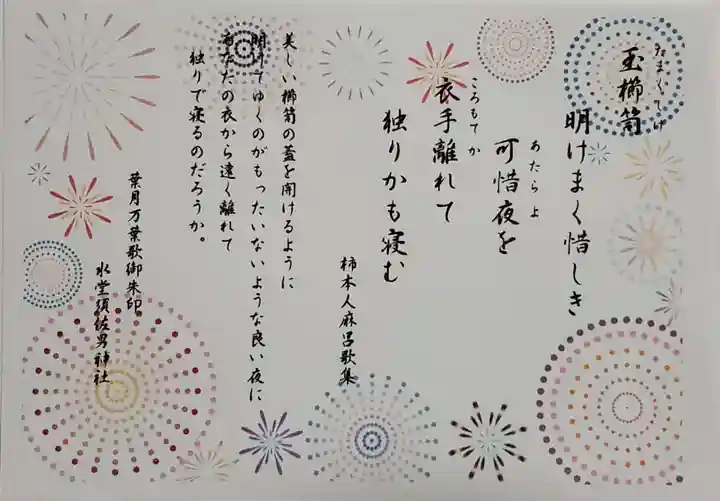 玉櫛笥
たまくしげ
明けまく惜しき
可惜夜を
あたらよ
衣手離れて
ころもてか
独りかも寝む
柿本人麻呂歌集
美しい櫛笥の蓋を開けるように
明けてゆくのがもったいないような良い夜に
あなたの衣から遠く離れて
独りで寝るのだろうか。
葉月万葉歌御朱印
水堂須佐男神社